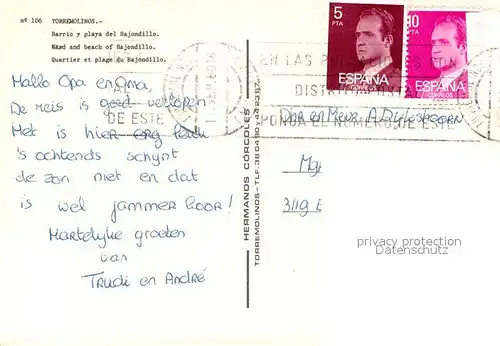 nº 106 TORREMOLINOS.-
Barrio y playa del Bajondillo.
Ward and beach of Bajondillo.
Quartier et plage du Bajondillo.
Hallo Opa en Oma,
De reis is goed verlopen
Het is hier erg leuk
's ochtends schynt
de zon niet en dat
is wel jammer hoor!
Hartelyke groeten
van
Trudi en André
HERMANOS CÓRCOLES
TORREMOLINOS-TLF.
5
PTA
ESPAÑA
CORREOS
10
PTA
ESPAÑA
CORREOS
EN LAS
DISTRITO
PONGA EL NUMERO DE ESTE
DE ESTE
3119 E
privacy protection
Datenschutz